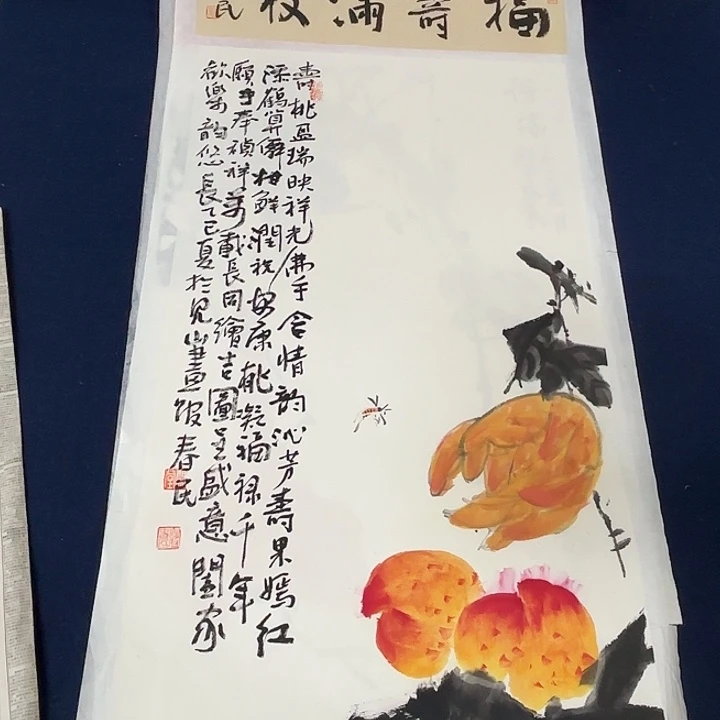 福寿满枝
民
壽桃盈瑞映祥光佛手含情韵沁芳壽果嫣红
添鶴算僊柑鲜潤祝安康桃凝福禄千年
願手奉禎祥萬載長同繪吉圖呈盛意闔家
歡樂韵悠長乙巳夏於見山畫館春民